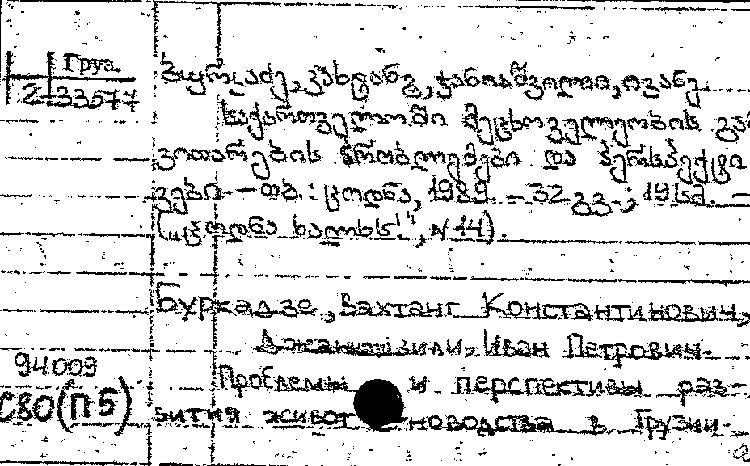 Груз.
2-33577
ბურკაძე, ვახტანგ, ჯანიაშვილი, ივანე.
საქართველოში მეცხოველეობის გან
ვითარების პრობლემები და პერსპექტი
ვები. — თბ.: ცოდნა, 1989. — 32 გვ.; 19 სმ. —
(„ცოდნა ხალხს", N 11).
Буркадзе, Вахтанг Константинович,
Иван Петрович.
Проблемы и перспективы раз-
вития живот новодства в Грузии.
94009
СВО(П5)